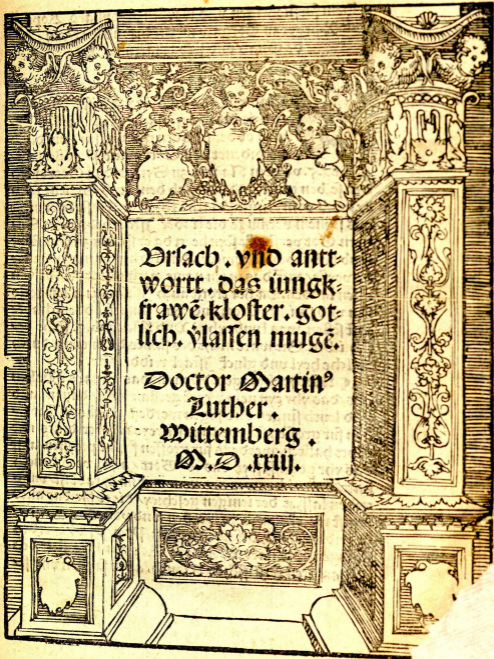 Vrsach . vnd antt⸗
wortt . das iungk⸗
frawẽ . kloster . got⸗
lich . v̈lassen mugẽ .
Doctor Martinꝰ
Luther .
Wittemberg .
M . D . xxiij .